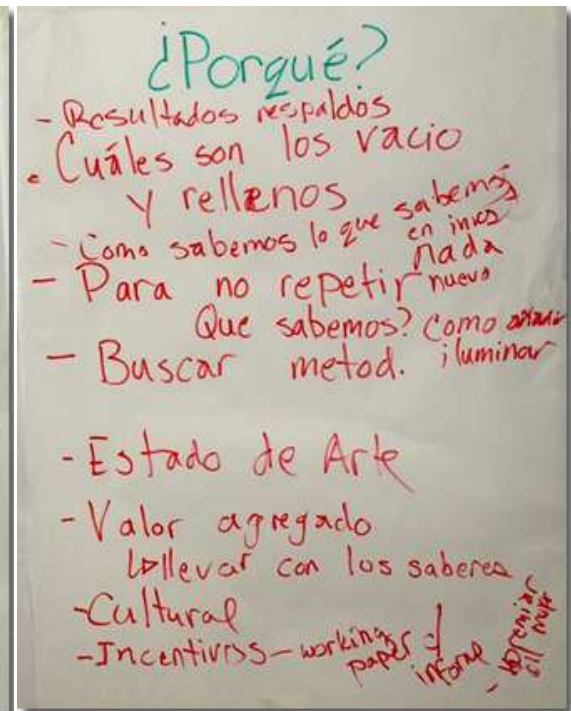 ¿Porqué?
- Resultados respaldos
• Cuáles son los vacio
y rellenos
- Como sabemos lo que sabemos
en
- Para no repetir nada
nuevo
Que sabemos? Como añadir
- Buscar metod. iluminar
- Estado de Arte
- Valor agregado
↳ llevar con los saberes
- Cultural
- Incentivss - working
paper
informe